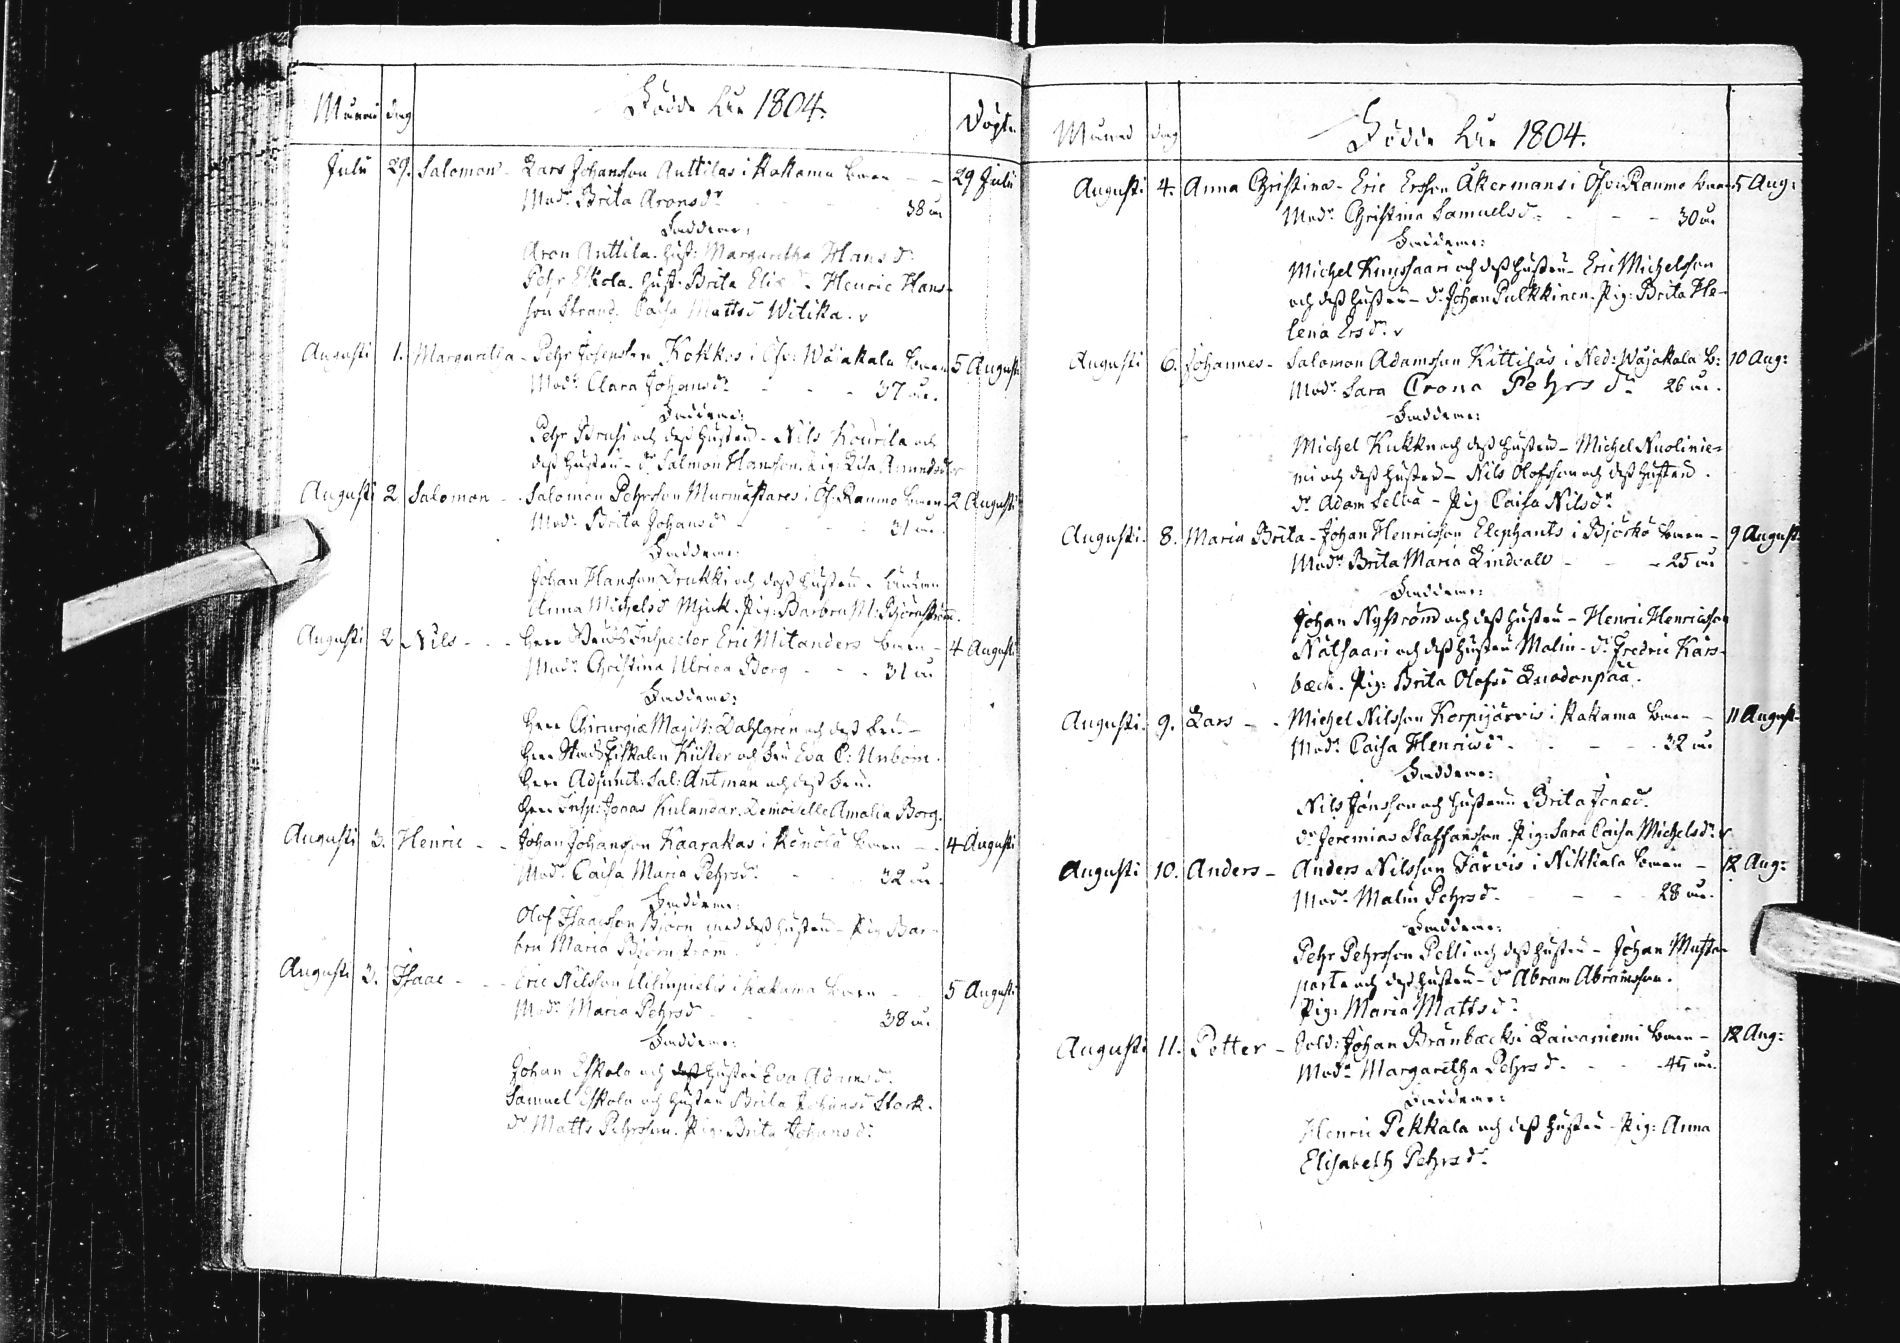 Månad dag Födde År 1804. Döpte
Julii 29. Salomon - Lars Johansson Anttilas i Kakama barn - - 29 Julii
Modr. Brita Aronsdr - - - 38 år
Faddrar:
Aron Anttila. hust: Margaretha Hansdr
Pehr Eskola. hust. Brita Eliædr Henric Hans-
son Strand. Caisa Mattsd Witika.
Augusti 1. Margaretha - Pehr Josephsson Kokkos i Öfv: Wojakala barn 5 Augusti
Modr. Clara Johansdr - - - 37 år.
Faddrar:
Pehr och dess hustru - Nils Kourila och
dess hustru - dr. Salmon Hansson. Pig:
Augusti 2 Salomon - Salomon Pehrsson Murmästares i Öf. Raumo barn - 2 Augusti
Modr. Brita Johansdr - - - 31 år.
Faddrar:
Johan Hansson Krukki och dess hustru -
Anna Michelsd Mjuk. Pig: Barbru M: Björnström.
Augusti 2 Nils - - Herr Inspector Eric Mitanders barn - 4 Augusti
Modr. Christina Ulrica Borg - - 31 år
Faddrar:
Herr Chirurgiæ Magist: Dahlgren och dess fru -
Herr Stadsfiskalen Küster och fru Eva C: Unbom.
Herr Adjunct: Sal: Antman och dess fru.
Herr Insp: Jonas Kulander. Demoiselle Amalia Borg.
Augusti 3. Henric - - Johan Johansson Kaarakas i Könölä barn - - 4 Augusti
Modr. Caisa Maria Pehrsdr - - 32 år.
Faddrar:
Olof Isaacsson Björn med dess hustru - Pig Bar-
bru Maria Björnström.
Augusti 3. Isaac - - Eric Nilsson Ylimpietis i Kakama barn - 5 Augusti
Modr. Maria Pehrsdr - - 38 år.
Faddrar:
Johan Eskola och dess hustru Eva Adamsdr.
Samuel Eskola och hustru Brita Johansd Stork.
dr. Matts Pehrsson. Pig: Brita Johansdr.
Månad dag Födde År 1804.
Augusti 4. Anna Christina - Eric Ersson Åkermans i Öfv: Raumo barn 5 Aug:
Modr. Christina Samuelsdr - - - 30 år
Faddrar:
Michel Kuussaari och dess hustru - Eric Michelsson
och dess hustru - dr. Johan Pulkkinen. Pig: Brita He-
lena Ersdr.
Augusti 6. Johannes - Salomon Adamsson Kittiläs i Ned: Wojakala b: 10 Aug:
Modr. Sara Crona Pehrsdr 26 år.
Faddrar:
Michel Kukko och dess hustru - Michel Nuolinie-
mi och dess hustru - Nils Olofsson och dess hustru.
dr. Adam - Pig Caisa Nilsdr
Augusti 8. Maria Brita - Johan Henricsson Elephants i Björkö barn - 9 August.
Modr. Brita Maria Lindvall - - - 25 år
Faddrar:
Johan Nyström och dess hustru - Henric Henricsson
Nätsaari och dess hustru Malin - dr. Fredric Kårs-
bæck. Pig: Brita Olofsd
Augusti 9. Lars - - Michel Nilsson Korpijärvis i Kakama barn - 11 August.
Modr. Caisa Henricsdr - - - 32 år
Faddrar:
Nils Jönsson och hustrun Brita Jönsd.
dr. Jeremias Staffansson. Pig: Sara Caisa Michelsdr.
Augusti 10. Anders - Anders Nilsson Järvis i Nikkala barn - 12 Aug:
Modr. Malin Pehrsdr. - - - 28 år.
Faddrar:
Pehr Pehrsson Pelli och dess hustru - Johan Musta-
parta och dess hustru - dr Abram Abramsson.
Pig: Maria Mattsdr
Augusti 11. Petter - Sold: Johan Brånbæcks i Laivaniemi barn - 12 Aug:
Modr. Margaretha Pehrsdr. - - - 45 år.
Faddrar:
Henric Pekkala och dess hustru - Pig: Anna
Elisabeth Pehrsdr.